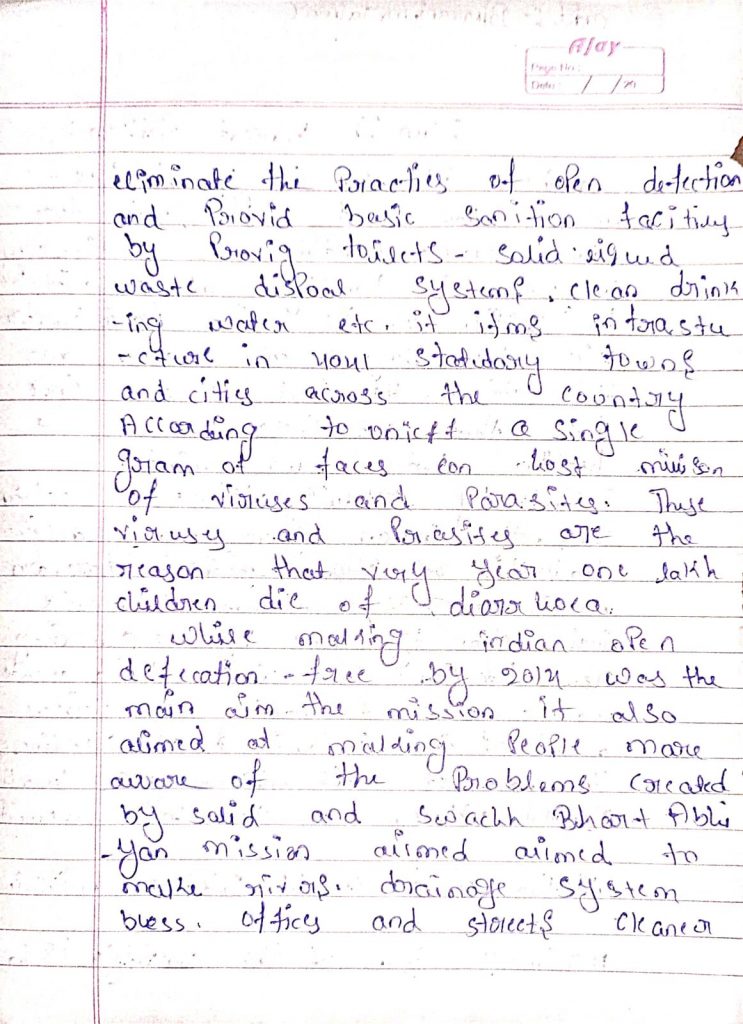 Ajay
Page No.:
Date: / /
eliminate the Practies of open defection
and Provid basic sanition facitiey
by Provig toilects - Salid
waste dispoal systems, clean drink
-ing water etc. it itms infrastu
-cture in 4041 statutary towns
and cities across the country
According to unicff a single
gram of faces can host
of viruses and Parasites. These
virusy and Prasites are the
reason that very year one lakh
children die of diarrhoea.
while making indian open
defecation - free by 2014 was the
main aim the mission it also
aimed at making People mare
aware of the Problems created
by salid and swachh Bhart Abhi
-yan mission aimed aimed to
make rivers. drainage system
offices and streets cleaner